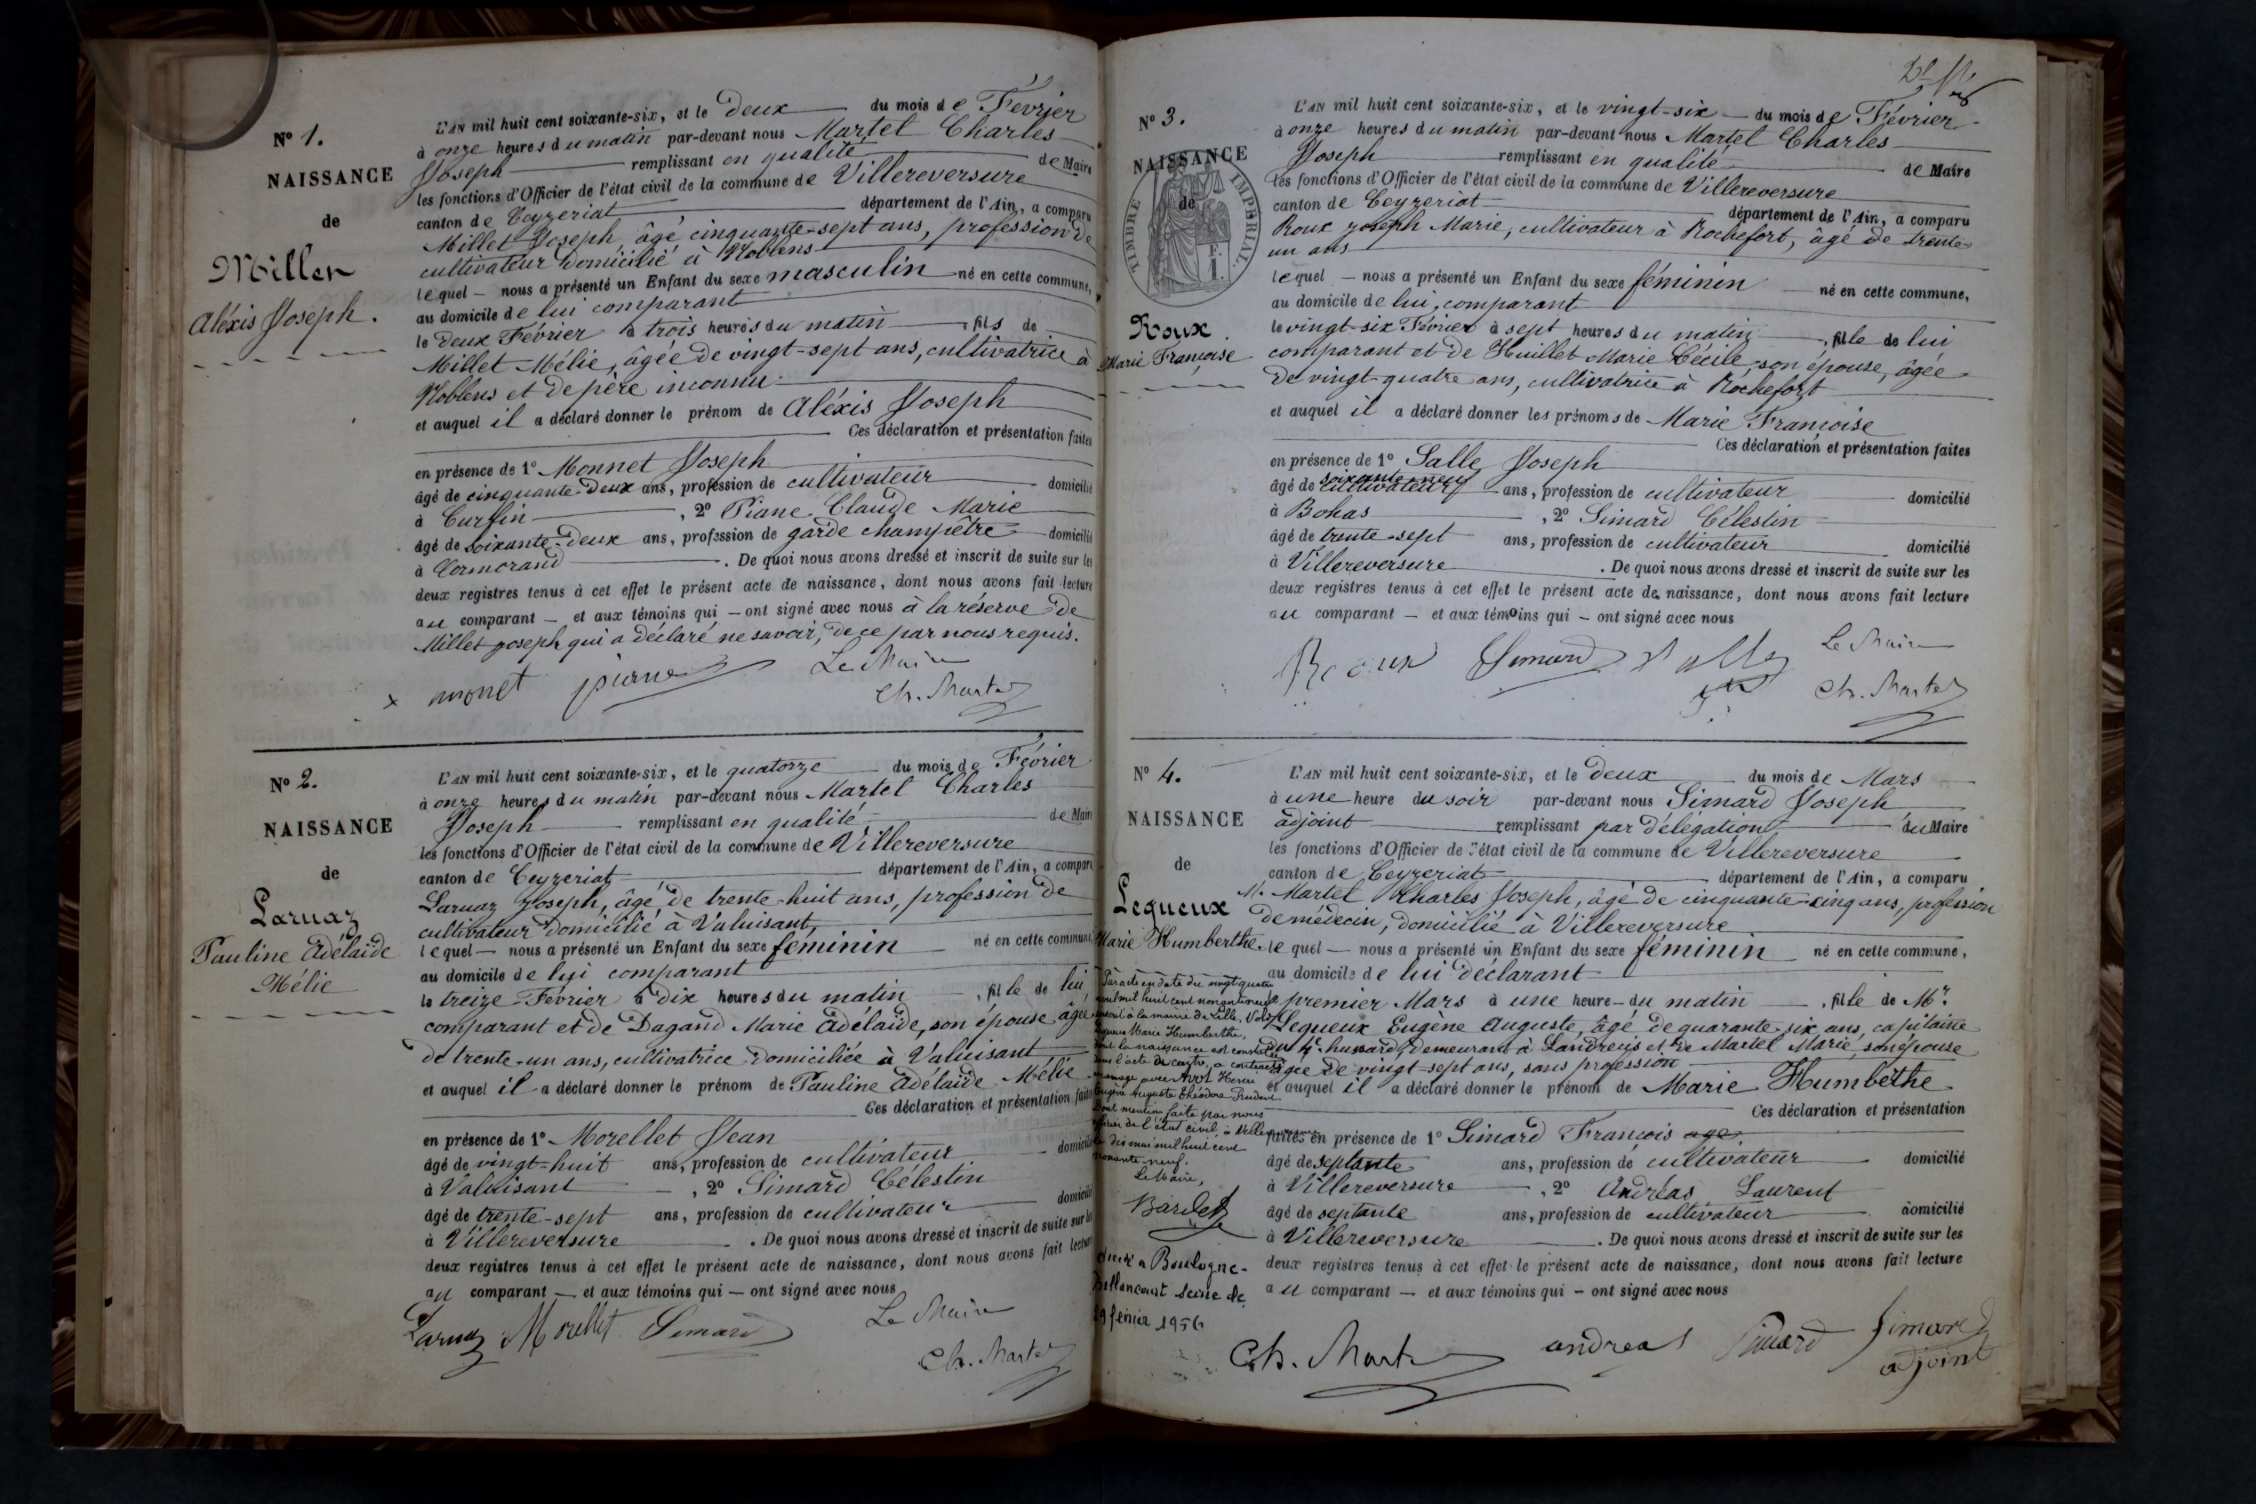 N° 1.
NAISSANCE
de
Millet
Aléxis Joseph.
L'AN mil huit cent soixante-six, et le deux du mois de Février
à onze heures du matin par-devant nous Martel Charles
Joseph remplissant en qualité de Maire
les fonctions d'Officier de l'état civil de la commune de Villereversure
canton de Ceyzeriat département de l'Ain, a comparu
Millet Joseph, âgé cinquante-sept ans, profession de
cultivateur domicilié à Noblens
lequel — nous a présenté un Enfant du sexe masculin né en cette commune,
au domicile de lui comparant
le deux Février à trois heures du matin, fils de
Millet Mélie, âgée de vingt-sept ans, cultivatrice à
Noblens et de père inconnu
et auquel il a déclaré donner le prénom de Aléxis Joseph
Ces déclaration et présentation faites
en présence de 1° Monnet Joseph
âgé de cinquante-deux ans, profession de cultivateur domicilié
à Curfin, 2° Piane Claude Marie
âgé de soixante-deux ans, profession de garde champêtre domicilié
à Cormorand. De quoi nous avons dressé et inscrit de suite sur les
deux registres tenus à cet effet le présent acte de naissance, dont nous avons fait lecture
au comparant — et aux témoins qui — ont signé avec nous à la réserve de
Millet joseph qui a déclaré ne savoir, de ce par nous requis.
monet piane Le Maire
Ch. Martel
N° 2.
NAISSANCE
de
Larnaz
Pauline Adélaïde
Mélie
L'AN mil huit cent soixante-six, et le quatorze du mois de Février
à onze heures du matin par-devant nous Martel Charles
Joseph remplissant en qualité de Maire
les fonctions d'Officier de l'état civil de la commune de Villereversure
canton de Ceyzeriat département de l'Ain, a comparu
Larnaz Joseph, âgé de trente-huit ans, profession de
cultivateur domicilié à Valuisant,
lequel — nous a présenté un Enfant du sexe féminin né en cette commune
au domicile de lui comparant
le treize Février à dix heures du matin, fille de lui
comparant et de Dagand Marie Adélaïde, son épouse âgée
de trente-un ans, cultivatrice domiciliée à Valuisant
et auquel il a déclaré donner le prénom de Pauline Adélaïde Mélie
Ces déclaration et présentation faites
en présence de 1° Morellet Jean
âgé de vingt-huit ans, profession de cultivateur domicilié
à Valuisant, 2° Simard Célestin
âgé de trente-sept ans, profession de cultivateur domicilié
à Villereversure. De quoi nous avons dressé et inscrit de suite sur les
deux registres tenus à cet effet le présent acte de naissance, dont nous avons fait lecture
au comparant — et aux témoins qui — ont signé avec nous
Larnaz Morellet Simard Le Maire
Ch. Martel
N° 3.
NAISSANCE
de
TIMBRE IMPÉRIAL.
F.
1.
Roux
Marie Françoise
L'AN mil huit cent soixante-six, et le vingt-six du mois de Février
à onze heures du matin par-devant nous Martel Charles
Joseph remplissant en qualité de Maire
les fonctions d'Officier de l'état civil de la commune de Villereversure
canton de Ceyzeriat département de l'Ain, a comparu
Roux Joseph Marie, cultivateur à Rochefort, âgé de trente
un ans
lequel — nous a présenté un Enfant du sexe féminin né en cette commune,
au domicile de lui, comparant
le vingt-six Février à sept heures du matin, fille de lui
comparant et de Huillet Marie Cécile, son épouse, âgée
de vingt-quatre ans, cultivatrice à Rochefort
et auquel il a déclaré donner les prénoms de Marie Françoise
Ces déclaration et présentation faites
en présence de 1° Salle Joseph
âgé de soixante-neuf cultivateur ans, profession de cultivateur domicilié
à Bohas, 2° Simard Célestin
âgé de trente-sept ans, profession de cultivateur domicilié
à Villereversure. De quoi nous avons dressé et inscrit de suite sur les
deux registres tenus à cet effet le présent acte de naissance, dont nous avons fait lecture
au comparant — et aux témoins qui — ont signé avec nous
Roux Simard Salle Le Maire
Ch. Martel
N° 4.
NAISSANCE
de
Lequeux
Marie Humberthe.
Par acte en date du vingt quatre
avril mil huit cent nonante neuf
à la mairie de Lille,
Lequeux Marie Humberthe,
dont la naissance est constatée
dans l'acte ci-contre, a contracté
mariage avec Avot Henri
Eugène Auguste Théodore Prudent
Dont mention faite par nous
officier de l'état civil à Villereversure
le dix mai mil huit cent
nonante-neuf.
Le Maire,
à Boulogne-
Billancourt Seine le
29 février 1956
L'AN mil huit cent soixante-six, et le deux du mois de Mars
à une heure du soir par-devant nous Simard Joseph
adjoint remplissant par délégation du Maire
les fonctions d'Officier de l'état civil de la commune de Villereversure
canton de Ceyzeriat département de l'Ain, a comparu
M. Martel Charles Joseph, âgé de cinquante-cinq ans, profession
de médecin, domicilié à Villereversure
lequel — nous a présenté un Enfant du sexe féminin né en cette commune,
au domicile de lui déclarant
le premier Mars à une heure du matin, fille de Mr.
Lequeux Eugène Auguste, âgé de quarante-six ans, capitaine
du 4e hussard, demeurant à Landrecis et de Martel Marie, son épouse
âgée de vingt-sept ans, sans profession
et auquel il a déclaré donner le prénom de Marie Humbethe
Ces déclaration et présentation
faites en présence de 1° Simard François age
âgé de septante ans, profession de cultivateur domicilié
à Villereversure, 2° Andréas Laurent
âgé de septante ans, profession de cultivateur domicilié
à Villereversure. De quoi nous avons dressé et inscrit de suite sur les
deux registres tenus à cet effet le présent acte de naissance, dont nous avons fait lecture
au comparant — et aux témoins qui — ont signé avec nous
Ch. Martel andreas Simard Simard
adjoint